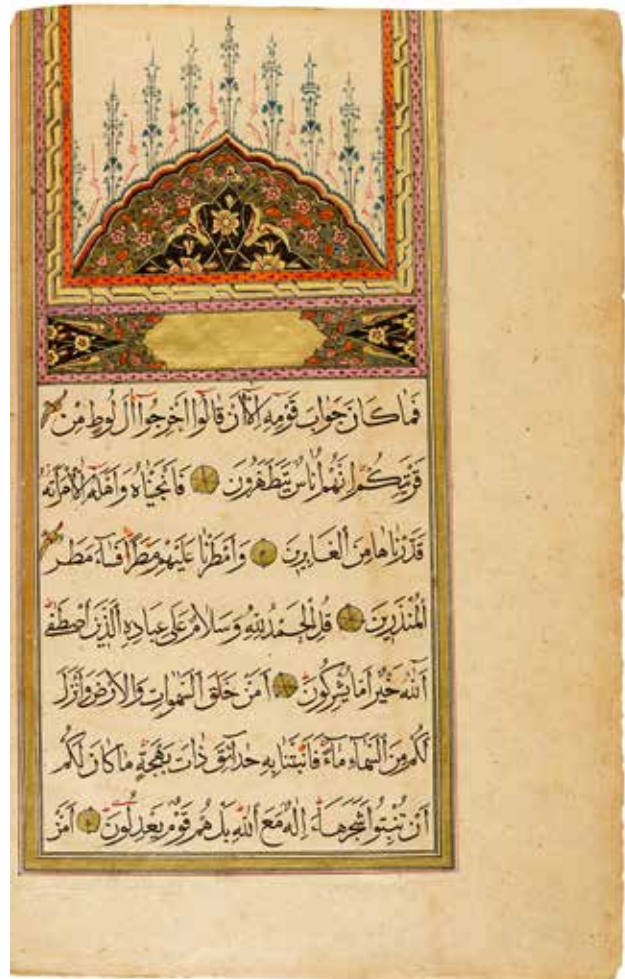 فَمَا كَانَ جَوَابَ قَوْمِهِ اِلَّا اَنْ قَالُوا اَخْرِجُوا اٰلَ لُوطٍ مِنْ
قَرْيَتِكُمْ اِنَّهُمْ اُنَاسٌ يَتَطَهَّرُونَ فَاَنْجَيْنَاهُ وَاَهْلَهُ اِلَّا امْرَاَتَهُ
قَدَّرْنَاهَا مِنَ الْغَابِرِينَ وَاَمْطَرْنَا عَلَيْهِمْ مَطَرًا فَسَاءَ مَطَرُ
الْمُنْذَرِينَ قُلِ الْحَمْدُ لِلّٰهِ وَسَلَامٌ عَلٰى عِبَادِهِ الَّذِينَ اصْطَفٰى
اَللّٰهُ خَيْرٌ اَمَّا يُشْرِكُونَ اَمَّنْ خَلَقَ السَّمٰوَاتِ وَالْاَرْضَ وَاَنْزَلَ
لَكُمْ مِنَ السَّمَاءِ مَاءً فَاَنْبَتْنَا بِهِ حَدَائِقَ ذَاتَ بَهْجَةٍ مَا كَانَ لَكُمْ
اَنْ تُنْبِتُوا شَجَرَهَا ءَاِلٰهٌ مَعَ اللّٰهِ بَلْ هُمْ قَوْمٌ يَعْدِلُونَ اَمَّنْ